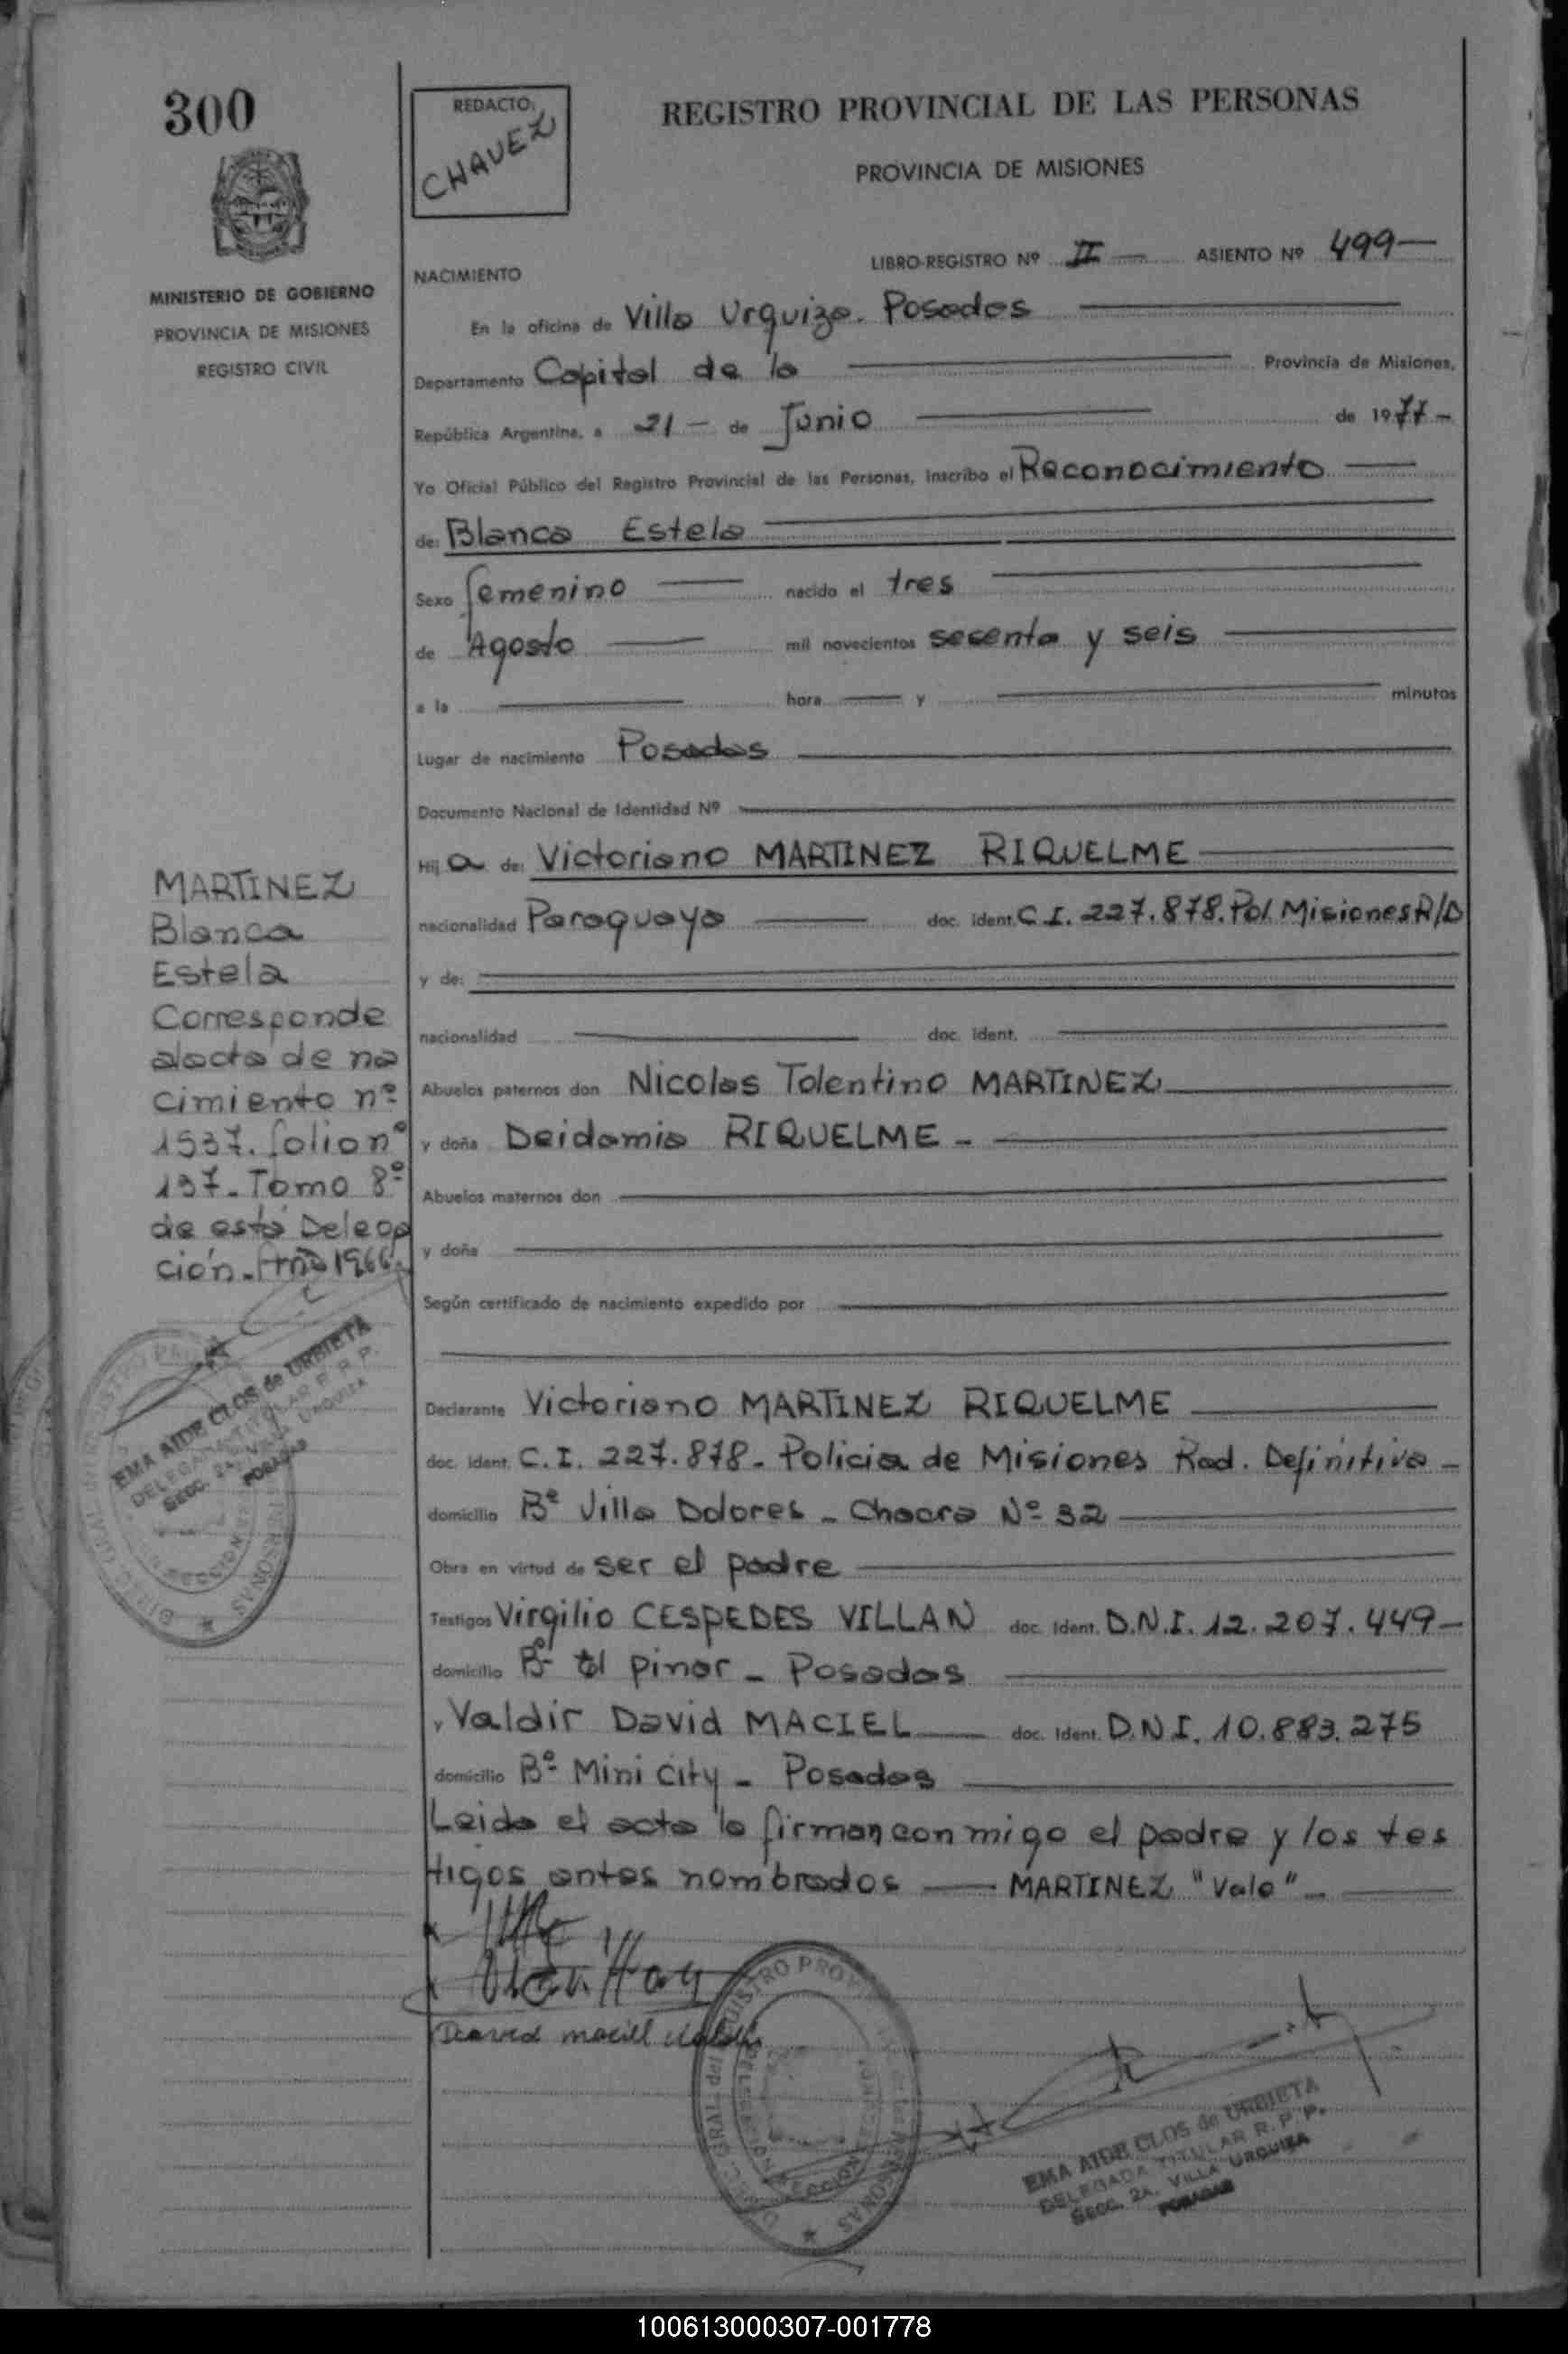 300
REDACTO:
CHAVEZ
REGISTRO PROVINCIAL DE LAS PERSONAS
PROVINCIA DE MISIONES
MINISTERIO DE GOBIERNO
PROVINCIA DE MISIONES
REGISTRO CIVIL
LIBRO-REGISTRO Nº II — ASIENTO Nº 499—
NACIMIENTO
En la oficina de Villa Urquiza. Posadas
Departamento Capital de la Provincia de Misiones,
República Argentina, a 21 — de Junio de 1977-
Yo Oficial Público del Registro Provincial de las Personas, inscribo el Reconocimiento
de: Blanca Estela
Sexo femenino nacido el tres
de Agosto mil novecientos sesenta y seis
a la hora y minutos
Lugar de nacimiento Posadas
Documento Nacional de Identidad Nº
Hij a de: Victoriano MARTINEZ RIQUELME
nacionalidad Paraguaya doc. ident. C.I. 227.878. Pol. Misiones R/D
y de:
nacionalidad doc. ident.
Abuelos paternos don Nicolas Tolentino MARTINEZ
y doña Deidamia RIQUELME -
Abuelos maternos don
y doña
Según certificado de nacimiento expedido por
Declarante Victoriano MARTINEZ RIQUELME
doc. ident. C.I. 227.878- Policia de Misiones Rad. Definitiva -
domicilio Bº Villa Dolores - Chacra Nº 32
Obra en virtud de ser el padre
Testigos Virgilio CESPEDES VILLAN doc. ident. D.N.I. 12.207.449-
domicilio Bº El Pinar - Posadas
y Valdir David MACIEL doc. ident. D.N.I. 10.883.275
domicilio Bº Mini City - Posadas
Leida el acta la firman conmigo el padre y los tes
tigos antes nombrados — MARTINEZ "Vale" -
MARTINEZ
Blanca
Estela
Corresponde
alacta de na
cimiento nº
1537. folio nº
137- Tomo 8º
de esta Delega
ción- Año 1966.
EMA AIDE CLOS de URBIETA
DELEGADA TITULAR R. P. P.
SECC. 2A. VILLA URQUIZA
POSADAS
David maciel
EMA AIDE CLOS de URBIETA
DELEGADA TITULAR R. P. P.
SECC. 2A. VILLA URQUIZA
POSADAS
100613000307-001778